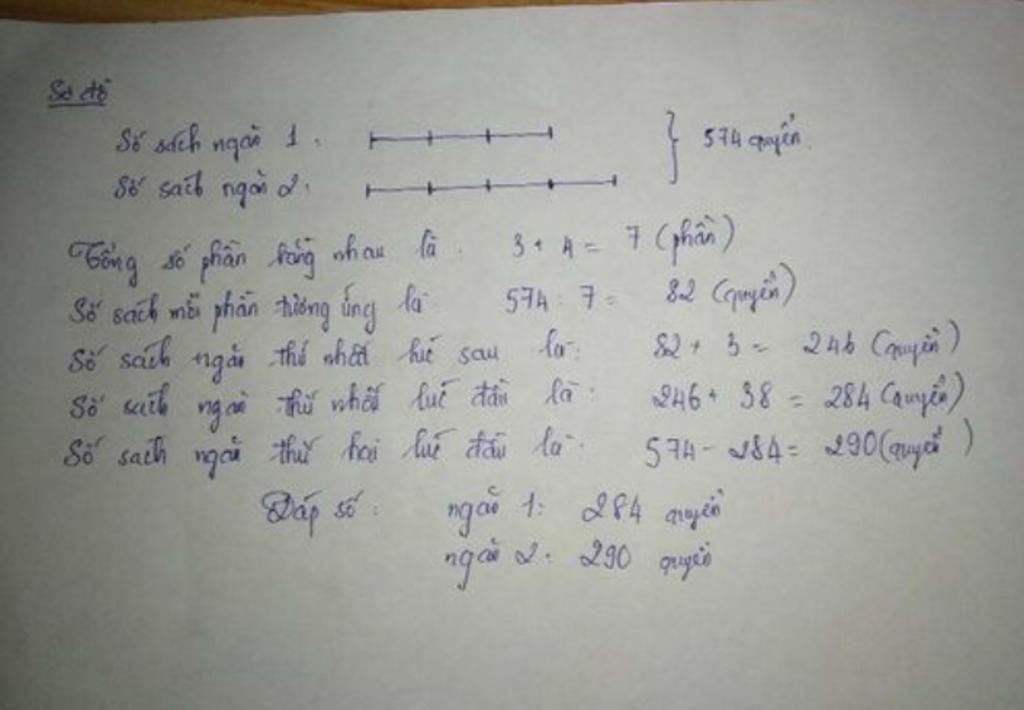 Sơ đồ
Số sách ngăn 1:
574 quyển.
Số sách ngăn 2:
Tổng số phần bằng nhau là: 3 + 4 = 7 (phần)
Số sách mỗi phần tương ứng là: 574 : 7 = 82 (quyển)
Số sách ngăn thứ nhất lúc sau là: 82 + 3 = 246 (quyển)
Số sách ngăn thứ nhất lúc đầu là: 246 + 38 = 284 (quyển)
Số sách ngăn thứ hai lúc đầu là: 574 - 284 = 290 (quyển)
Đáp số: ngăn 1: 284 quyển
ngăn 2: 290 quyển